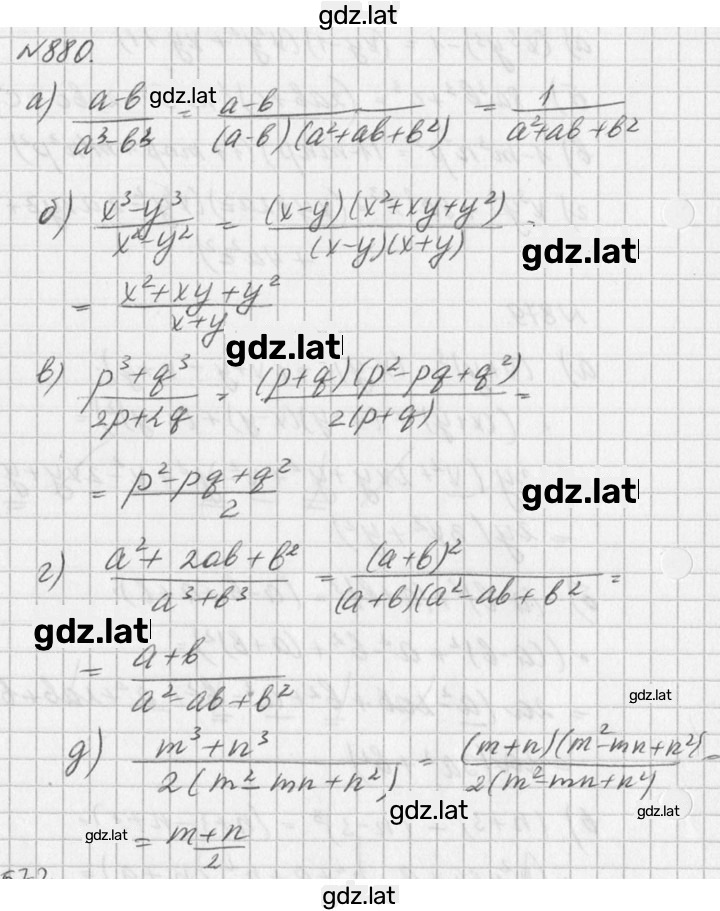 gdz.lat
№880.
а) (a-b)/(a³-b³) = (a-b)/((a-b)(a²+ab+b²)) = 1/(a²+ab+b²)
gdz.lat
б) (x³-y³)/(x²-y²) = ((x-y)(x²+xy+y²))/((x-y)(x+y)) =
gdz.lat
= (x²+xy+y²)/(x+y)
gdz.lat
в) (p³+q³)/(2p+2q) = ((p+q)(p²-pq+q²))/(2(p+q)) =
= (p²-pq+q²)/2
gdz.lat
г) (a²+2ab+b²)/(a³+b³) = (a+b)²/((a+b)(a²-ab+b²) =
gdz.lat
= (a+b)/(a²-ab+b²)
gdz.lat
д) (m³+n³)/(2(m²-mn+n²)) = ((m+n)(m²-mn+n²))/(2(m²-mn+n²)) =
gdz.lat
gdz.lat
gdz.lat
= (m+n)/2
gdz.lat